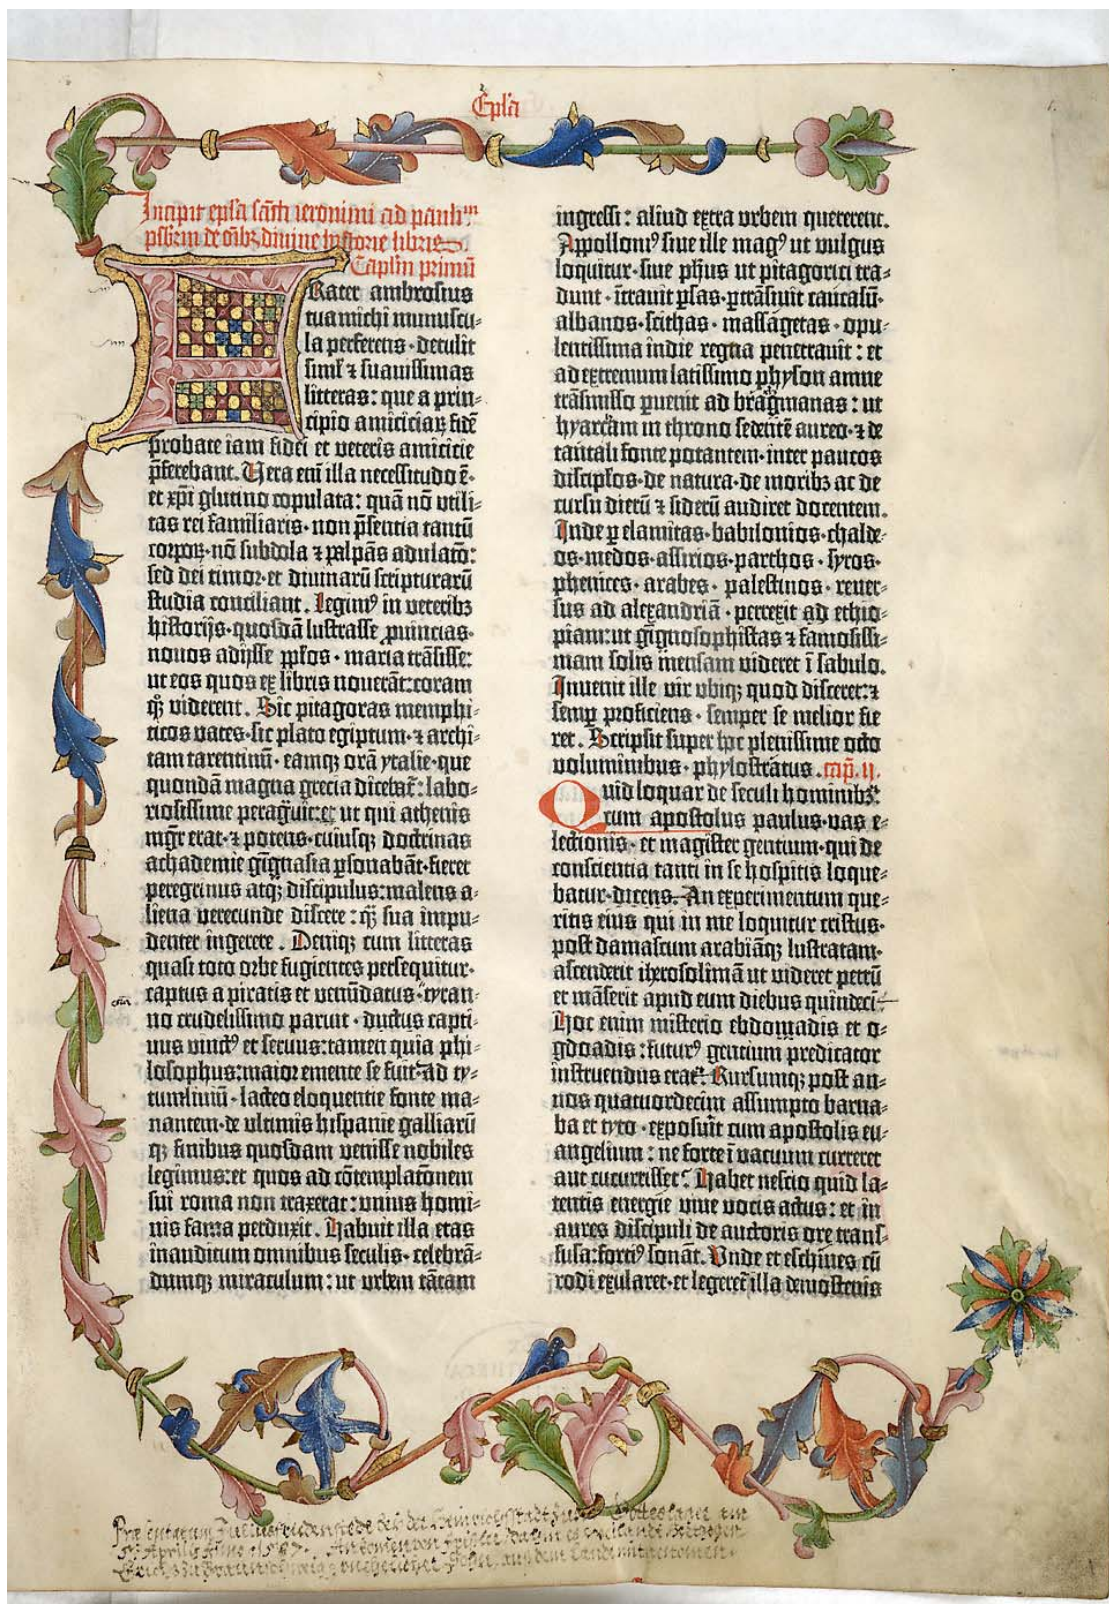 Epl'a
Incipit epl'a sancti ieronimi ad paulinum
presbiterum de omnibus divine historie libris
Capl'm primū
Frater ambrosius
tua michi munuscu-
la perferens· detulit
siml' ⁊ suavissimas
litteras: que a prin-
cipio amiciciaꝝ fidē
probate iam fidei et veteris amicicie
p̄ferebant. Uera em̄ illa necessitudo ē·
et xp̄i glutino copulata: quā nō utili-
tas rei familiaris· non p̄sentia tantū
corpoꝝ· nō subdola ⁊ palpās adulatō:
sed dei timor· et diuinarū scripturarū
studia conciliant. Legimꝰ in veteribꝫ
historijs· quosdā lustrasse ꝓuincias·
nouos adijsse pp̄los· maria trāsisse:
ut eos quos ex libris nouerāt: coram
qꝫ viderent. Sic pitagoras memphi-
ticos vates· sic plato egiptum· ⁊ archi-
tam tarentinū· eamqꝫ orā ytalie· que
quondā magna grecia diceba&#x74;̄: labo-
riosissime peragravit: et ut qui athenis
mgr̄ erat· ⁊ potens· cuiusqꝫ doctrinas
achademie gignasia ꝑsonabāt· fieret
peregrinus atqꝫ discipulus: malens a-
liena verecunde discere: qꝫ sua impu-
denter ingerere. Deniqꝫ cum litteras
quasi toto orbe fugientes persequitur·
captus a piratis et venūdatus· tyran-
no crudelissimo paruit· ductus capti-
uus vinctꝰ et seruus: tamen quia phi-
losophus: maior emente se fuit· ad ty-
tumliuiū· lacteo eloquentie fonte ma-
nantem· de ultimis hispanie galliarū
qꝫ finibus quosdam venisse nobiles
legimus: et quos ad cōtemplatōnem
sui roma non traxerat: unius homi-
nis fama perduxit. Habuit illa etas
inauditum omnibus seculis· celebrā-
dumqꝫ miraculum: ut urbem tātam
ingressi: aliud extra urbem quererent.
Appollonꝰ siue ille magꝰ ut vulgus
loquitur· siue ph'us ut pitagorici tra-
dunt· ītrauit ꝑsas· ꝑtrāsiuit caucasū·
albanos· scithas· massagetas· opu-
lentissima indie regna penetrauit: et
ad extremum latissimo physon amne
trāsmisso ꝑuenit ad bragmanas: ut
hyarcam in throno sedentē aureo· ⁊ de
tantali fonte potantem· inter paucos
discipl'os· de natura· de moribꝫ ac de
cursu dierū ⁊ siderū audiret docentem.
Inde ꝑ elamitas· babilonios· chalde-
os· medos· assirios· parthos· syros·
phenices· arabes· palestinos· reuer-
sus ad alexandriā· perrexit ad ethio-
piam: ut gignosophistas ⁊ famosissi-
mam solis mensam videret ī sabulo.
Inuenit ille vir ubiqꝫ quod disceret: ⁊
semꝑ proficiens· semper se melior fie
ret. Scripsit super hoc plenissime octo
voluminibus· phylostratus. cap. II.
Quid loquar de seculi hominibꝫ:
cum apostolus paulus· vas e-
lectionis· et magister gentium· qui de
conscientia tanti in se hospitis loque-
batur· dicens. An experimentum que-
ritis eius qui in me loquitur cristus·
post damascum arabiāqꝫ lustratam·
ascenderit iherosolimā ut videret petrū
et māserit apud eum diebus quindecī-
Hoc enim misterio ebdomadis et o-
gdoadis: futurꝰ gentium predicator
instruendus erat. Rursumqꝫ post an-
nos quatuordecim assumpto barna-
ba et tyto· exposuit cum apostolis eu-
angelium: ne forte ī vacuum curreret
aut cucurrisset. Habet nescio quid la-
tentis energie viue vocis actus: et in
aures discipuli de auctoris ore trans-
fusa: fortiꝰ sonat. Unde et eschines cū
rodi exularet· et legeret̄ illa demostenis